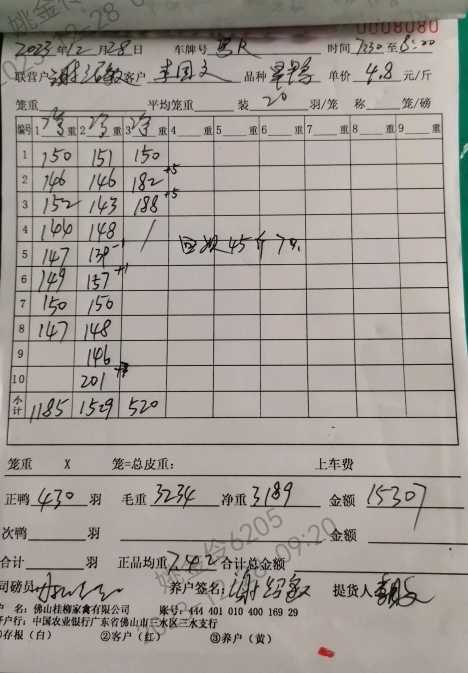 0008080
2023年12月28日 车牌号 时间7:30至8:20
联营户谢绍敏客户李国文 品种 单价4.8元/斤
笼重 平均笼重 装20羽/笼 称 笼/磅
编号 1 重 2 重 3 重 4 重 5 重 6 重 7 重 8 重 9 重
1 150 151 150
2 146 146 182+5
3 152 143 188+5
4 144 148 /
5 147 139-1 45斤7只
6 149 157+1
7 150 150
8 147 148
9 146
10 201
小计 1185 1529 520
笼重 X 笼=总皮重: 上车费
正鸭430羽 毛重3234 净重3189 金额15307
次鸭 羽 金额
合计 羽 正品均重7.42 合计总金额
司磅员 养户签名:谢绍敏 提货人
户 名: 佛山桂柳家禽有限公司 账号: 444 401 010 400 169 29
开户行: 中国农业银行广东省佛山市三水区三水支行
①存根(白) ②客户(红) ③养户(黄)
姚金伶6205
2023-12-28 09:20